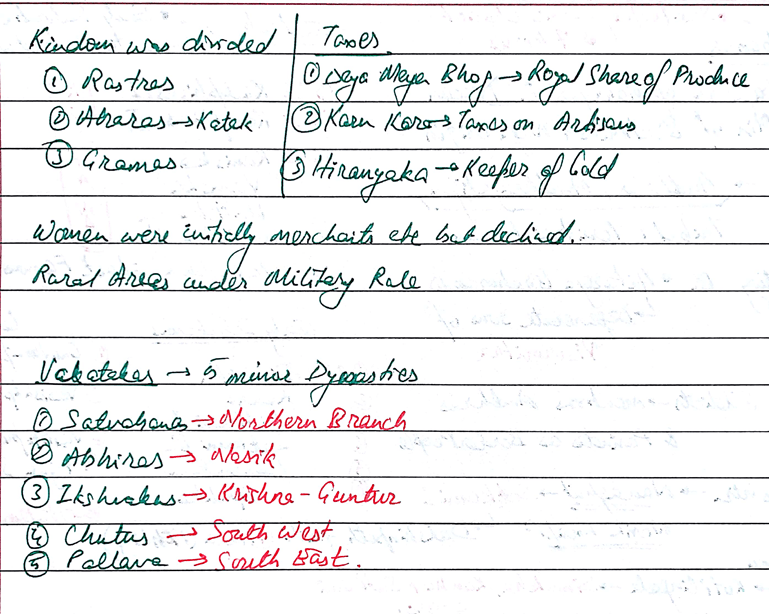 Kindom was divided
① Rastras
② Aharas → Katak
③ Gramas
Taxes
① Deya Meya Bhog → Royal Share of Produce
② Karu Kara → Taxes on Artisans
③ Hiranyaka → Keeper of Gold
Women were initially merchants etc but declined.
Rural Areas under Military Rule
Vakatakas → 5 minor Dynasties
① Satvahanas → Northern Branch
② Abhiras → Nasik
③ Ikshvakus → Krishna - Guntur
④ Chutus → South West
⑤ Pallava → South East.